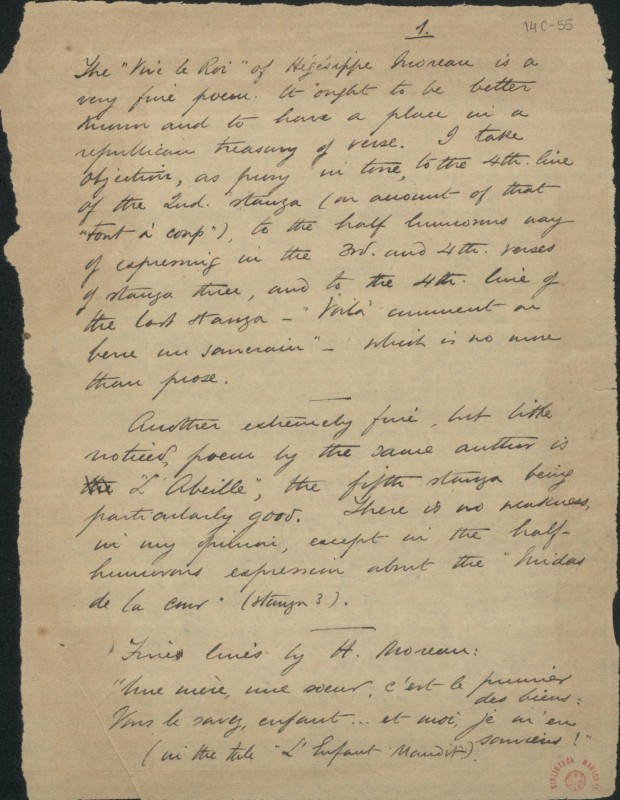 1.
14C-55
The "Vive le Roi" of Hégésippe Moreau is a
very fine poem. It ought to be better
known and to have a place in a
republican treasury of verse. I take
objection, as puny in tone, to the 4th. line
of the 2nd. stanza (on account of that
"Tout à coup"), to the half humorous way
of expressing in the 3rd. and 4th. verses
of stanza three, and to the 4th. line of
the last stanza — "Voilà comment on
berce un souverain" — which is no more
than prose.
Another extremely fine, but little
noticed, poem by the same author is
the "L'Abeille", the fifth stanza being
particularly good. There is no weakness,
in my opinion, except in the half-
humorous expression about the "Midas
de la cour" (stanza 3).
Fine lines by H. Moreau:
"Une mère, une soeur, c'est le premier
des biens:
Vous le savez, enfant... et moi, je m'en
souviens!"
(in the tale "L'Enfant Maudit").
BIBLIOTECA